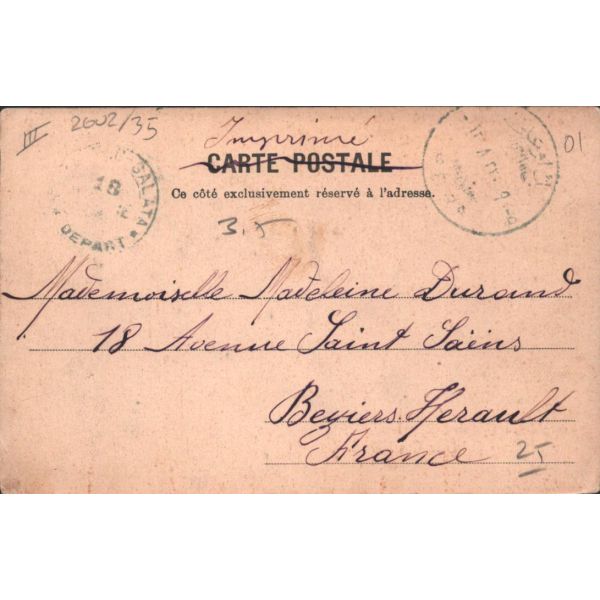 III
2602/35
01
Imprimé
CARTE POSTALE
Ce côté exclusivement réservé à l'adresse.
GALATA
18
DEPART
3.5
Mademoiselle Madeleine Durand
18 Avenue Saint Saëns
Beziers. Herault
France
25